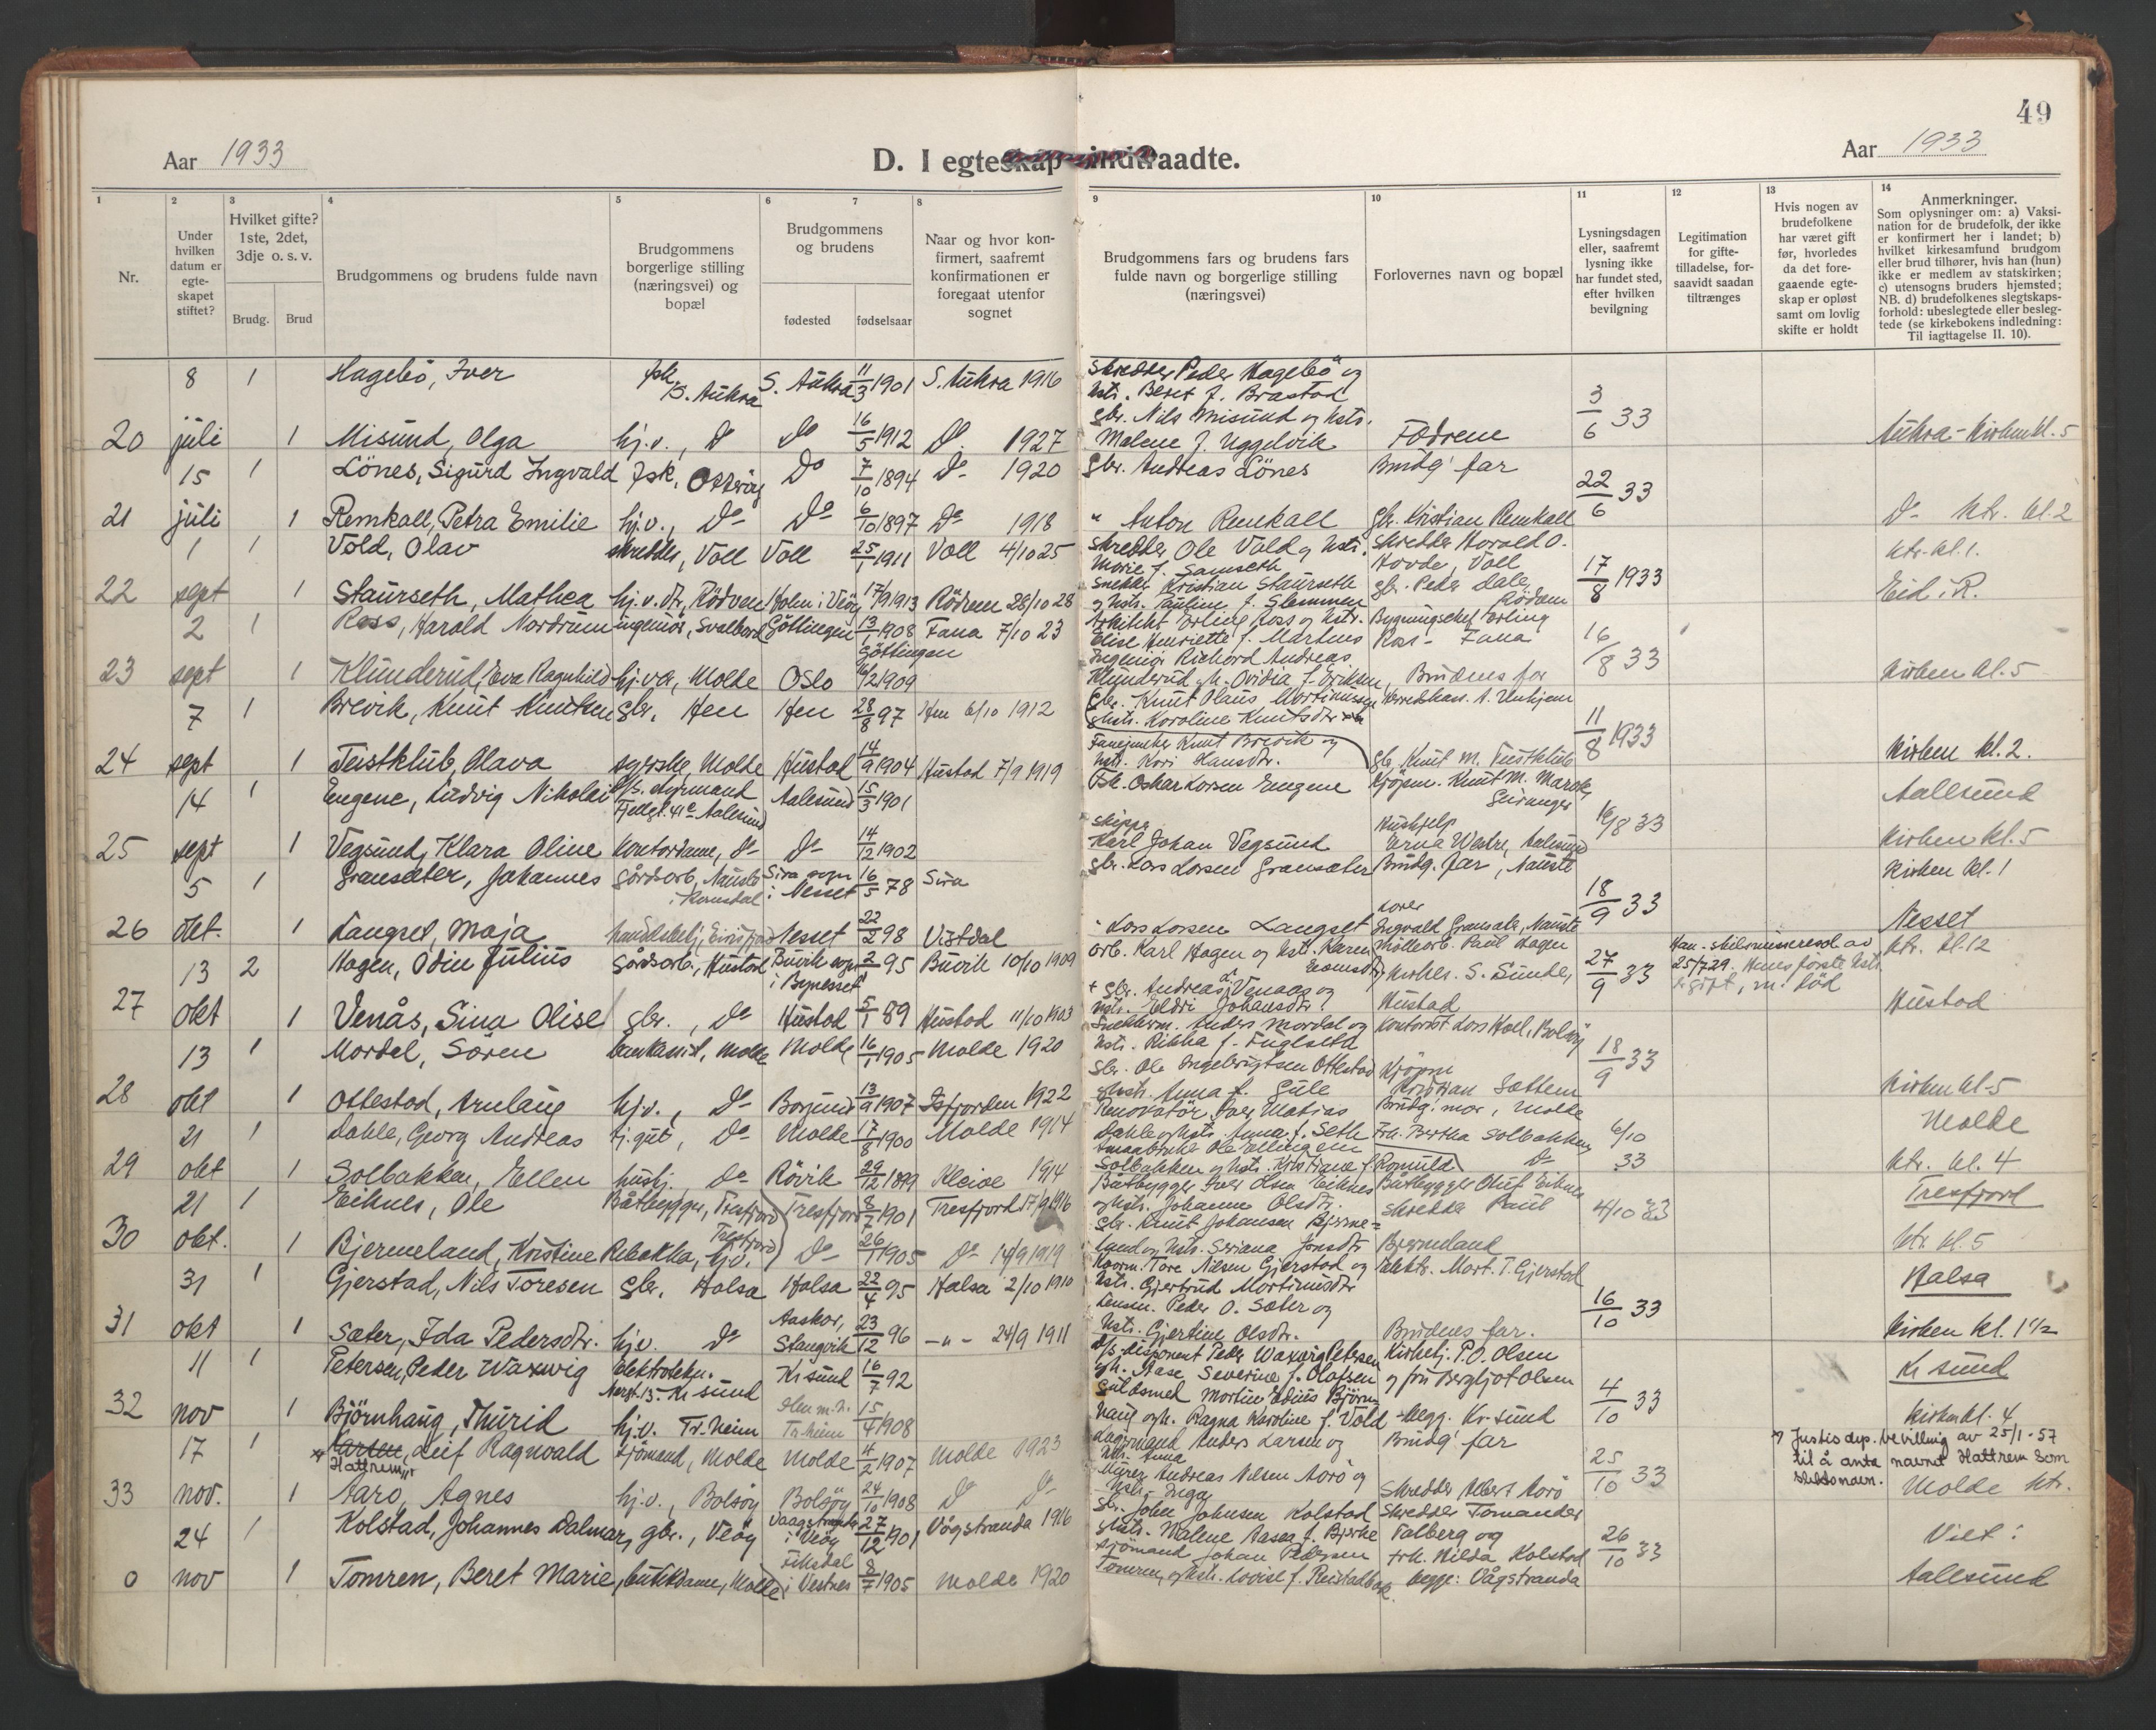 49
Aar 1933
D. I egteskap indtraadte.
Aar 1933
1
2
3
4
5
6
7
8
9
10
11
12
13
14
Nr.
Under hvilken datum er egte-skapet stiftet?
Hvilket gifte? 1ste, 2det, 3dje o. s. v.
Brudg.
Brud
Brudgommens og brudens fulde navn
Brudgommens borgerlige stilling (næringsvei) og bopæl
Brudgommens og brudens
fødested
fødselsaar
Naar og hvor kon-firmert, saafremt konfirmationen er foregaat utenfor sognet
Brudgommens fars og brudens fars fulde navn og borgerlige stilling (næringsvei)
Forlovernes navn og bopæl
Lysningsdagen eller, saafremt lysning ikke har fundet sted, efter hvilken bevilgning
Legitimation for gifte-tilladelse, for-saavidt saadan tiltrænges
Hvis nogen av brudefolkene har været gift før, hvorledes da det fore-gaaende egte-skap er opløst samt om lovlig skifte er holdt
Anmerkninger.
Som oplysninger om: a) Vaksi-nation for de brudefolk, der ikke er konfirmert her i landet; b) hvilket kirkesamfund brudgom eller brud tilhører, hvis han (hun) ikke er medlem av statskirken; c) utensogns bruders hjemsted; NB. d) brudefolkenes slegtskaps-forhold: ubeslegtede eller besleg-tede (se kirkebokens indledning: Til iagttagelse II. 10).
8 1 Hagebö, Iver fsk. S. Aukra S. Aukra 11/3 1901 S. Aukra 1916 Skredder Peder Hagebö og Hstr. Beret f. Brastad 3/6 33
20 juli 1 Misund, Olga hj.v., Do Do 16/5 1912 Do 1927 gbr. Nils Misund og Hstr. Malene f. Uggelvik Fedrene Aukra-Kirken kl. 5
15 1 Lönes, Sigurd Ingvald fsk, Otteröy Do 7/10 1894 Do 1920 gbr. Andreas Lönes Brudg' far 22/6 33
21 juli 1 Remkall, Petra Emilie hj.v., Do Do 6/10 1897 Do 1918 " Anton Remkall gbr. Kristian Remkall Do ktr. kl. 2
1 1 Vold, Olav skredder, Voll Voll 25/1 1911 Voll 4/10 25 Skredder Ole Vold og Hstr. Marie f. Samseth Skredder Harald O. Hovde, Voll 17/8 1933 ktr. kl. 1.
22 sept 1 Staurseth, Mathea hj.v. dtr, Rödven Holm i Veöy 17/9 1913 Rödven 28/10 28 Snekker Kristian Staurseth og Hstr. Pauline f. Slemmen gbr. Peder Dale, Rödven Eid i R.
2 1 Ross, Harald Nordrum ingeniör, Svalbard Göttingen 13/1 1908 Fana 7/10 23 Arkitekt Erling Ross og Hstr. Elise Henriette f. Martens Bygningschef Erling Ross - Fana 16/8 33
Göttingen
23 sept 1 Klunderud, Eva Ragnhild hj.vær, Molde Oslo 16/12 1909 Ingeniör Richard Andreas Klunderud og h. Ovidia f. Eriksen Brudens far Kirken kl. 5
7 1 Brevik, Knut Knutsen gbr. Hen Hen 28/8 97 Hen 6/10 1912 Gbr. Knut Olaus Mortinussen og Hstr. Karoline Knutsdtr Herredskass. A. Unhjem 11/8 1933
24 sept 1 Tustklub, Olava syerske, Molde Hustad 14/9 1904 Hustad 7/9 1919 Fanejunker Knut Brevik og Hstr. Kari Hansdtr. Gbr. Knut M. Tustklub Kirken kl. 2.
14 1 Eugene, Ludvig Nikolai D/s. styrmand Fjellgt. 41c Aalesund Aalesund 15/3 1901 Fsk. Oskar Larsen Eugene Kjöpm. Knut M. Marok, Geiranger 16/8 33 Aallesund
25 sept 1 Vegsund, Klara Oline Kontordame, do Do 14/12 1902 Skipper Karl Johan Vegsund Hushjelp Erna Westre, Aalesund Kirken kl. 5
5 1 Gransæter, Johannes Gårdsarb, Nauste i Romsdal Sira sogn i Nesset 16/5 78 Sira gbr. Lars Larsen Gransæter Brudg. far, Nauste 18/9 33 Kirken kl. 1
26 okt. 1 Langset, Maja handelsbetj, Eirisfjord Nesset 22/2 98 Vistdal " Lars Larsen Langset Ingvald Gransæter, Nauste Nesset
13 2 Hagen, Odin Julius Gårdsarb, Hustad Buvik sogn i Bynesset 2/1 95 Buvik 10/10 1909 Arb. Karl Hagen og Hst. Karen Paul Hagen 27/9 33 25/7 29. Hans förste Hstr. ktr. kl. 12
27 okt 1 Venås, Sina Olise gbr., Do Hustad 5/1 89 Hustad 11/10 1903 + gbr. Andreas L. Venaas og Hstr. Eldri Johansdtr. Kirkes. S. Sunde, Hustad Hustad
13 1 Mordal, Sören bankass, Molde Molde 16/1 1905 Molde 1920 Snekkerm. Anders Mordal og Hstr. Rikka f. Fuglseth Kontorist Lars Hoel, Bolsöy 18/9 33
28 okt 1 Ottestad, Arnlaug hj.v., Do Borgund 13/9 1907 Isfjorden 1922 gbr. Ole Ingebrigtsen Ottestad og Hstr. Anna f. Gule Kjöpm Kristian Sættem Kirken kl. 5
21 1 Dahle, Georg Andreas tj.gut, Do Molde 17/8 1900 Molde 1914 Renovatör Iver Matias Dahle og Hstr. Anna f. Seth Brudg' mor, Molde 6/10 33 Molde
29 okt 1 Solbakken, Ellen husj. Do Rövik 29/12 1899 Kleive 1914 Småbruker Ole Ellingsen Solbakken og Hstr. Kristiane f. Romuld Frk. Bertha Solbakken Do ktr. kl. 4
21 1 Eiknes, Ole Båtbygger, Tresfjord Tresfjord 8/7 1901 Tresfjord 17/9 1916 Båtbygger Iver Olsen Eiknes og Hstr. Johanne Olsdtr. Båtbygger Oluf Eiknes 4/10 33 Tresfjord
30 okt. 1 Bjermeland, Kristine Rebekka, hj.v. Tresfjord Do 26/1 1905 Do 14/9 1919 gbr. Knut Johansen Bjerme=land og Hstr. Seriana Jonsdtr Skredder Paul Bjermeland ktr. kl. 5
31 1 Gjerstad, Nils Toresen gbr. Halsa Halsa 22/4 95 Halsa 2/10 1910 Tore Nilsen Gjerstad og Hstr. Gjertrud Mortinusdtr Elektr. Mart. T. Gjerstad 16/10 33 Halsa
31 okt 1 Sæter, Ida Pedersdtr. hj.v. Do Aaskar, Stangvik 23/12 96 -"- 24/9 1911 Lensm. Peder O. Sæter og Hstr. Gjertine Olsdtr. Brudens far. Kirken kl. 1 1/2
11 1 Petersen, Peder Waxwig Elektrotekn. Kr sund Kr sund 16/7 92 D/s-disponent Peder Waxwig Petersen og h. Aase Severine f. Olafsen Kirketj. P.O. Olsen og fru Bergljot Olsen 4/10 33 Kr sund
32 nov 1 Björnhaug, Thurid hj.v. Tr.heim Tr.heim 15/4 1908 Guldsmed Martin Edius Björn=haug og h. Ragna Karoline f. Vold begg. Kr. sund Kirken kl. 4
17 1 x Larsen, Leif Ragnvald sjömand, Molde Molde 4/2 1907 Molde 1923 Lagermand Anders Larsen og Hstr. Anna Brudg' far 25/10 33
Hattrem
x Justisdep. bevilling av 25/1-57 til å anta navnet Hattrem som slektsnavn.
33 nov. 1 Aarö, Agnes hj.v., Bolsöy Bolsöy 24/10 1908 Do Do Murer Andreas Nilsen Aarö og Hstr. Inga Skredder Albert Aarö Molde ktr.
24 1 Kolstad, Johannes Dalmar, gbr., Veöy Vaagstranda i Veöy 27/12 1901 Vågstranda 1916 gbr. John Johnsen Kolstad og Hstr. Malene Aasea f. Bjerke Skredder Tomander Valberg og 26/10 33 Viet i
0 nov 1 Tomren, Beret Marie, butikdame, Molde Fiksdal i Vestnes 8/7 1905 Molde 1920 sjömand Johan Pedersen Tomren, og Hstr. Lovise f. Reistadbak. frk. Hilda Kolstad begge: Vågstranda Aallesund